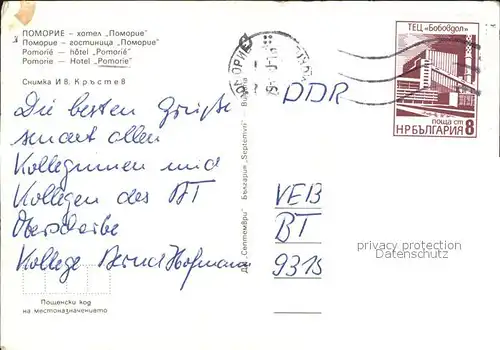 ПОМОРИЕ — хотел „Поморие"
Поморие — гостиница „Поморие"
Pomorié — hôtel „Pomorié"
Pomorie — Hotel „Pomorie"
Снимка И в. Кръстев
Die besten Grüße
sendet allen
Kolleginnen und
Kollegen des BT
Kollege Bernd Hofmann
Пощенски код
на местоназначението
ДП „Септември" България „Septemvri"
ТЕЦ „Бобовдол"
поща ст 8
НРБЪЛГАРИЯ
DDR
VEB
BT
9315
privacy protection
Datenschutz